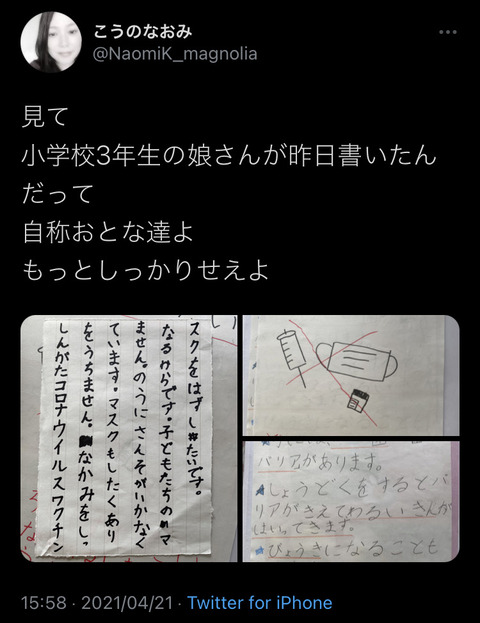 こうのなおみ
@NaomiK_magnolia
見て
小学校3年生の娘さんが昨日書いたん
だって
自称おとな達よ
もっとしっかりせえよ
しんがたコロナウイルスワクチン
をうちません。なかみをしっ
ています。マスクもしたくあり
ません。のうにさんそがいかなく
なるからです。子どもたちのマ
スクをはずしたいです。
バリアがあります。
★しょうどくをするとバ
リアがきえてわるいきんが
はいってきます。
★びょうきになることも
15:58 · 2021/04/21 · Twitter for iPhone